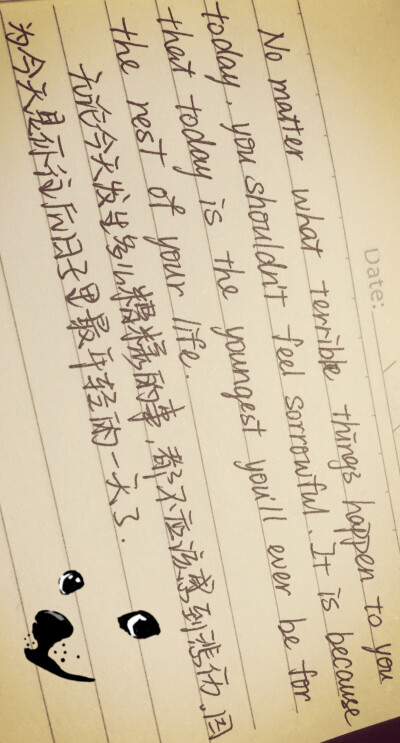 Date:
No matter what terrible things happen to you
today, you shouldn't feel sorrowful. It is because
that today is the youngest you'll ever be for
the rest of your life.
无论今天发生多么糟糕的事,都不应该感到悲伤,因
为今天是你往后日子里最年轻的一天了.